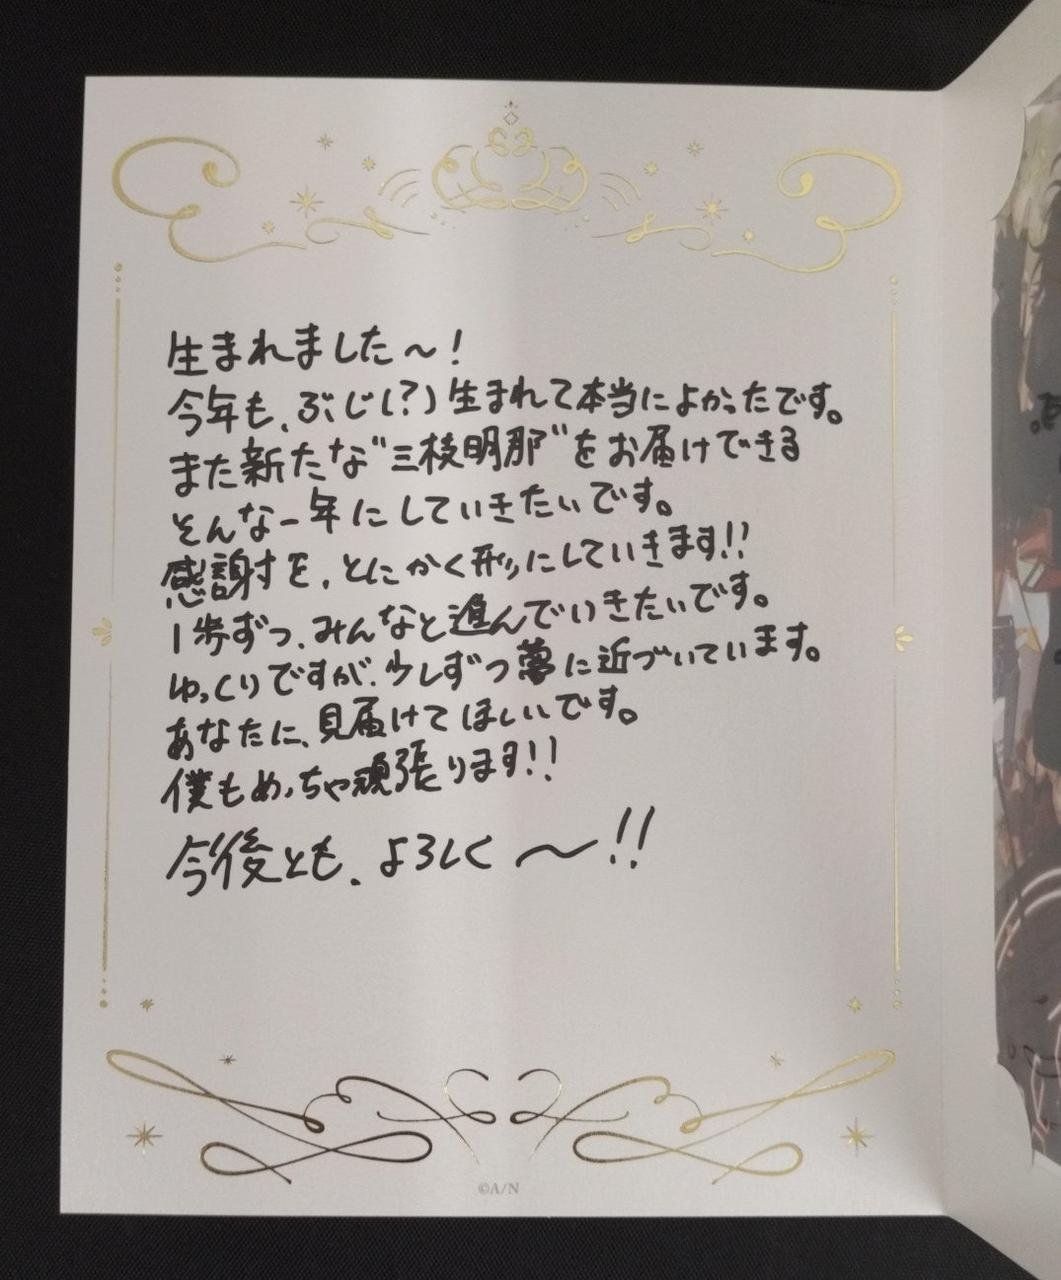 生まれました〜!
今年も、ぶじ(?)生まれて本当によかったです。
また新たな"三枝明那"をお届けできる
そんな一年にしていきたいです。
感謝を、とにかく形にしていきます!!
1歩ずつ、みんなと進んでいきたいです。
ゆっくりですが、少しずつ夢に近づいています。
あなたに、見届けてほしいです。
僕もめっちゃ頑張ります!!
今後とも、よろしく〜!!
©A/N